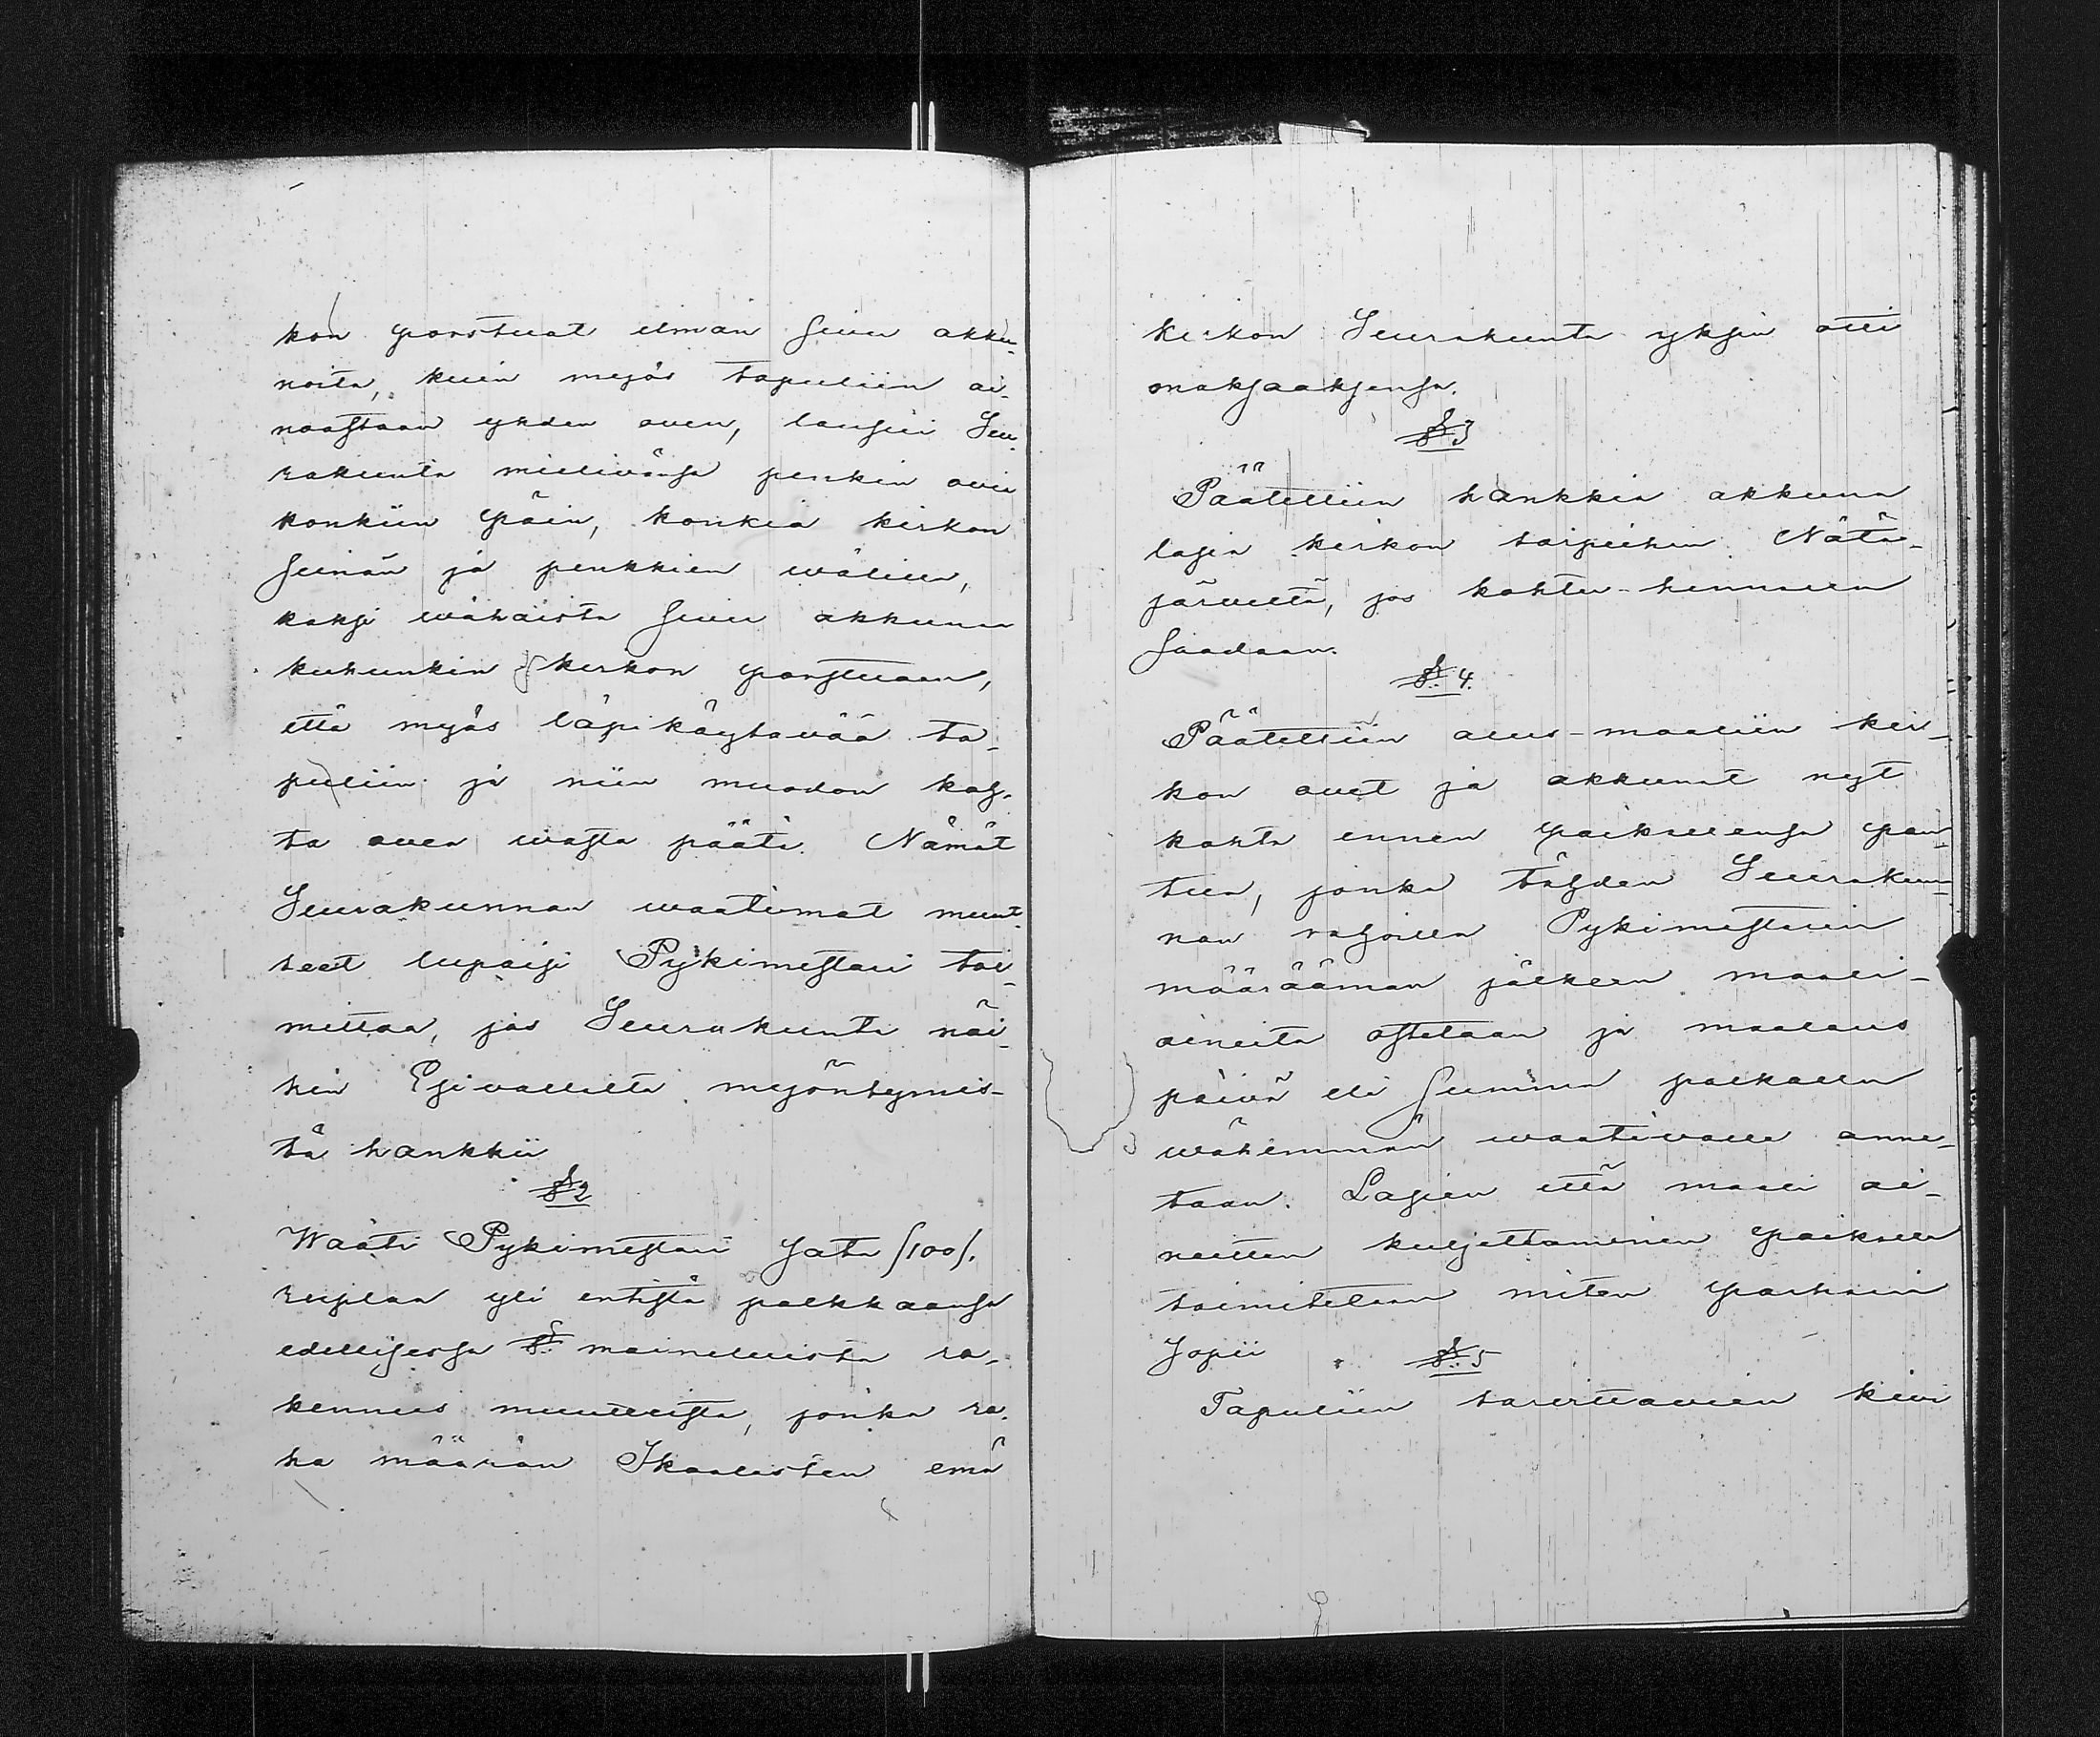 kon porstuat ilman sivu akku-
noita, kuin myös tapuliin ai-
noastaan yhden oven, lausui Seu-
rakunta mielivänsä penkin ovia
konkiin päin, konkia kirkon
seinän ja penkkien wälille,
kaksi wähäistä sivu akkunaa
kuhunkin kirkon porstuaan,
että myös läpikäytävää ta-
puliin ja niin muodon kah-
ta ovea wasta päätä. Nämät
Seurakunnan waatimat muut-
teet lupaisi Pykimestari toi-
mittaa, jos Seurakunta näi-
hin Esivallalta myöntymis-
tä hankkii
§2
Waati Pykimestari Sata /100/.
ruplaa yli entistä palkkaansa
edellisessä §: mainituista ra-
kennus muutteista, jonka ra-
ha määrän Ikaalisten emä
kirkon Seurakunta yksin otti
maksaaksensa.
§3
Päätettiin hankkia akkuna
lasia kirkon tarpeihin Nätä-
järveltä, jos kohtu-hinnalla
saadaan.
§: 4.
Päätettiin alus-maaliin kir-
kon ovet ja akkunat nyt
kohta ennen paikallensa pan-
tua, jonka tähden Seurakun-
nan rahoilla Pykimestarin
määräämän jälkeen maali-
aineita ostetaan ja maalaus
päivä eli summa palkalla
wähemmän waativalle anne-
taan. Lasien että maali ai-
neitten kuljettaminen paikalle
toimitetaan miten parhain
Sopii
§: 5
Tapuliin tarvittavien kivi